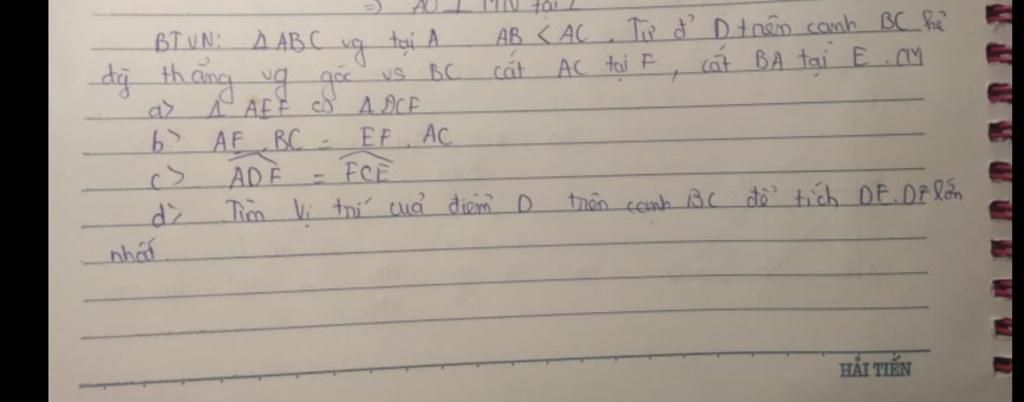 => AO ⊥ MN tại I
BTVN: Δ ABC vg tại A AB < AC. Từ đ' D trên cạnh BC kẻ
đg thẳng vg góc vs BC cắt AC tại F, cắt BA tại E. CM
a> Δ AEF ∽ Δ DCF
b> AF.BC = EF.AC
c> ADF = FCE
d> Tìm vị trí cuả điểm D trên cạnh BC để tích DE.DF lớn
nhất.
HẢI TIẾN